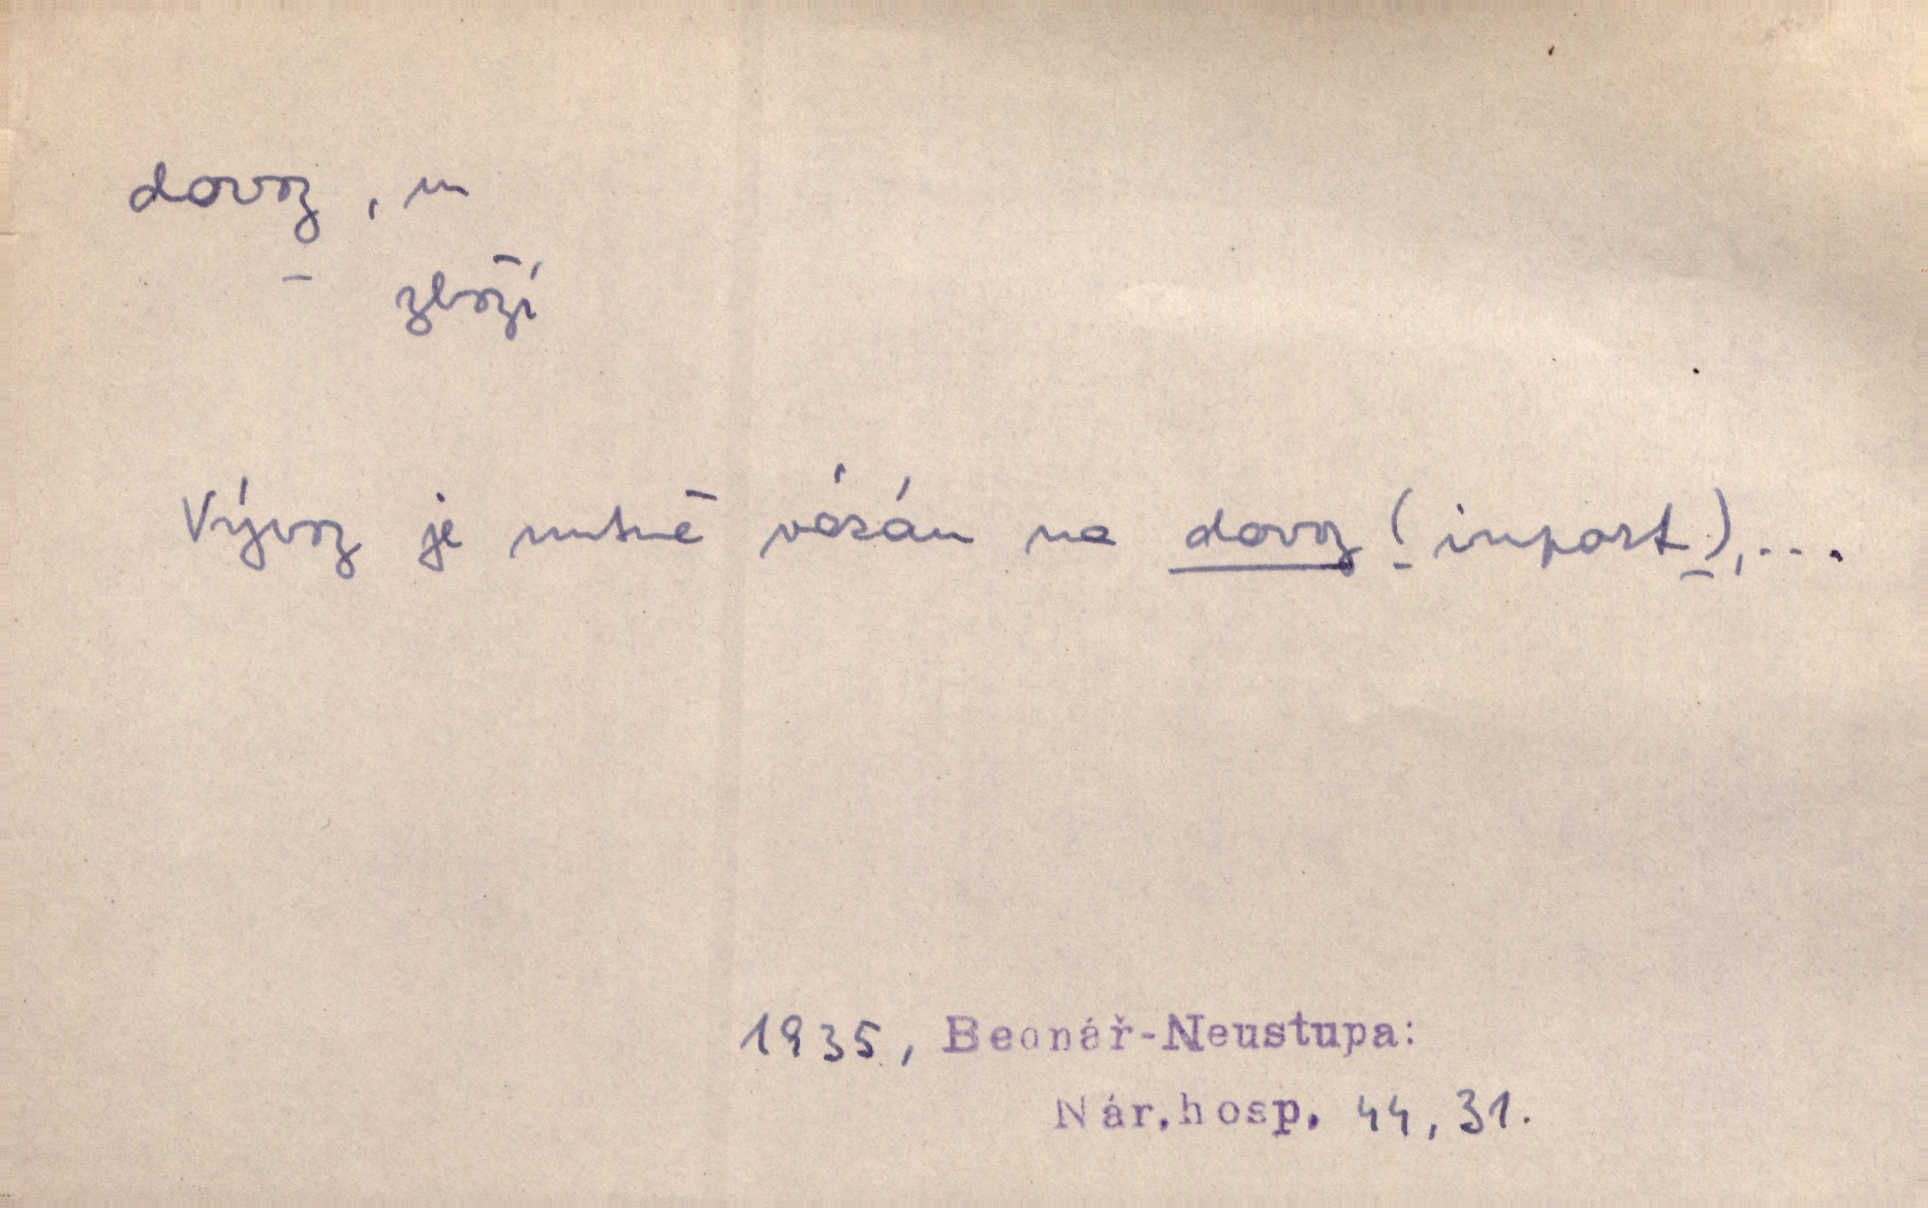 dovoz, m
– zboží
Vývoz je nutně vázán na dovoz (import),...
1935, Beonář-Neustupa:
Nár.hosp. 44, 31.